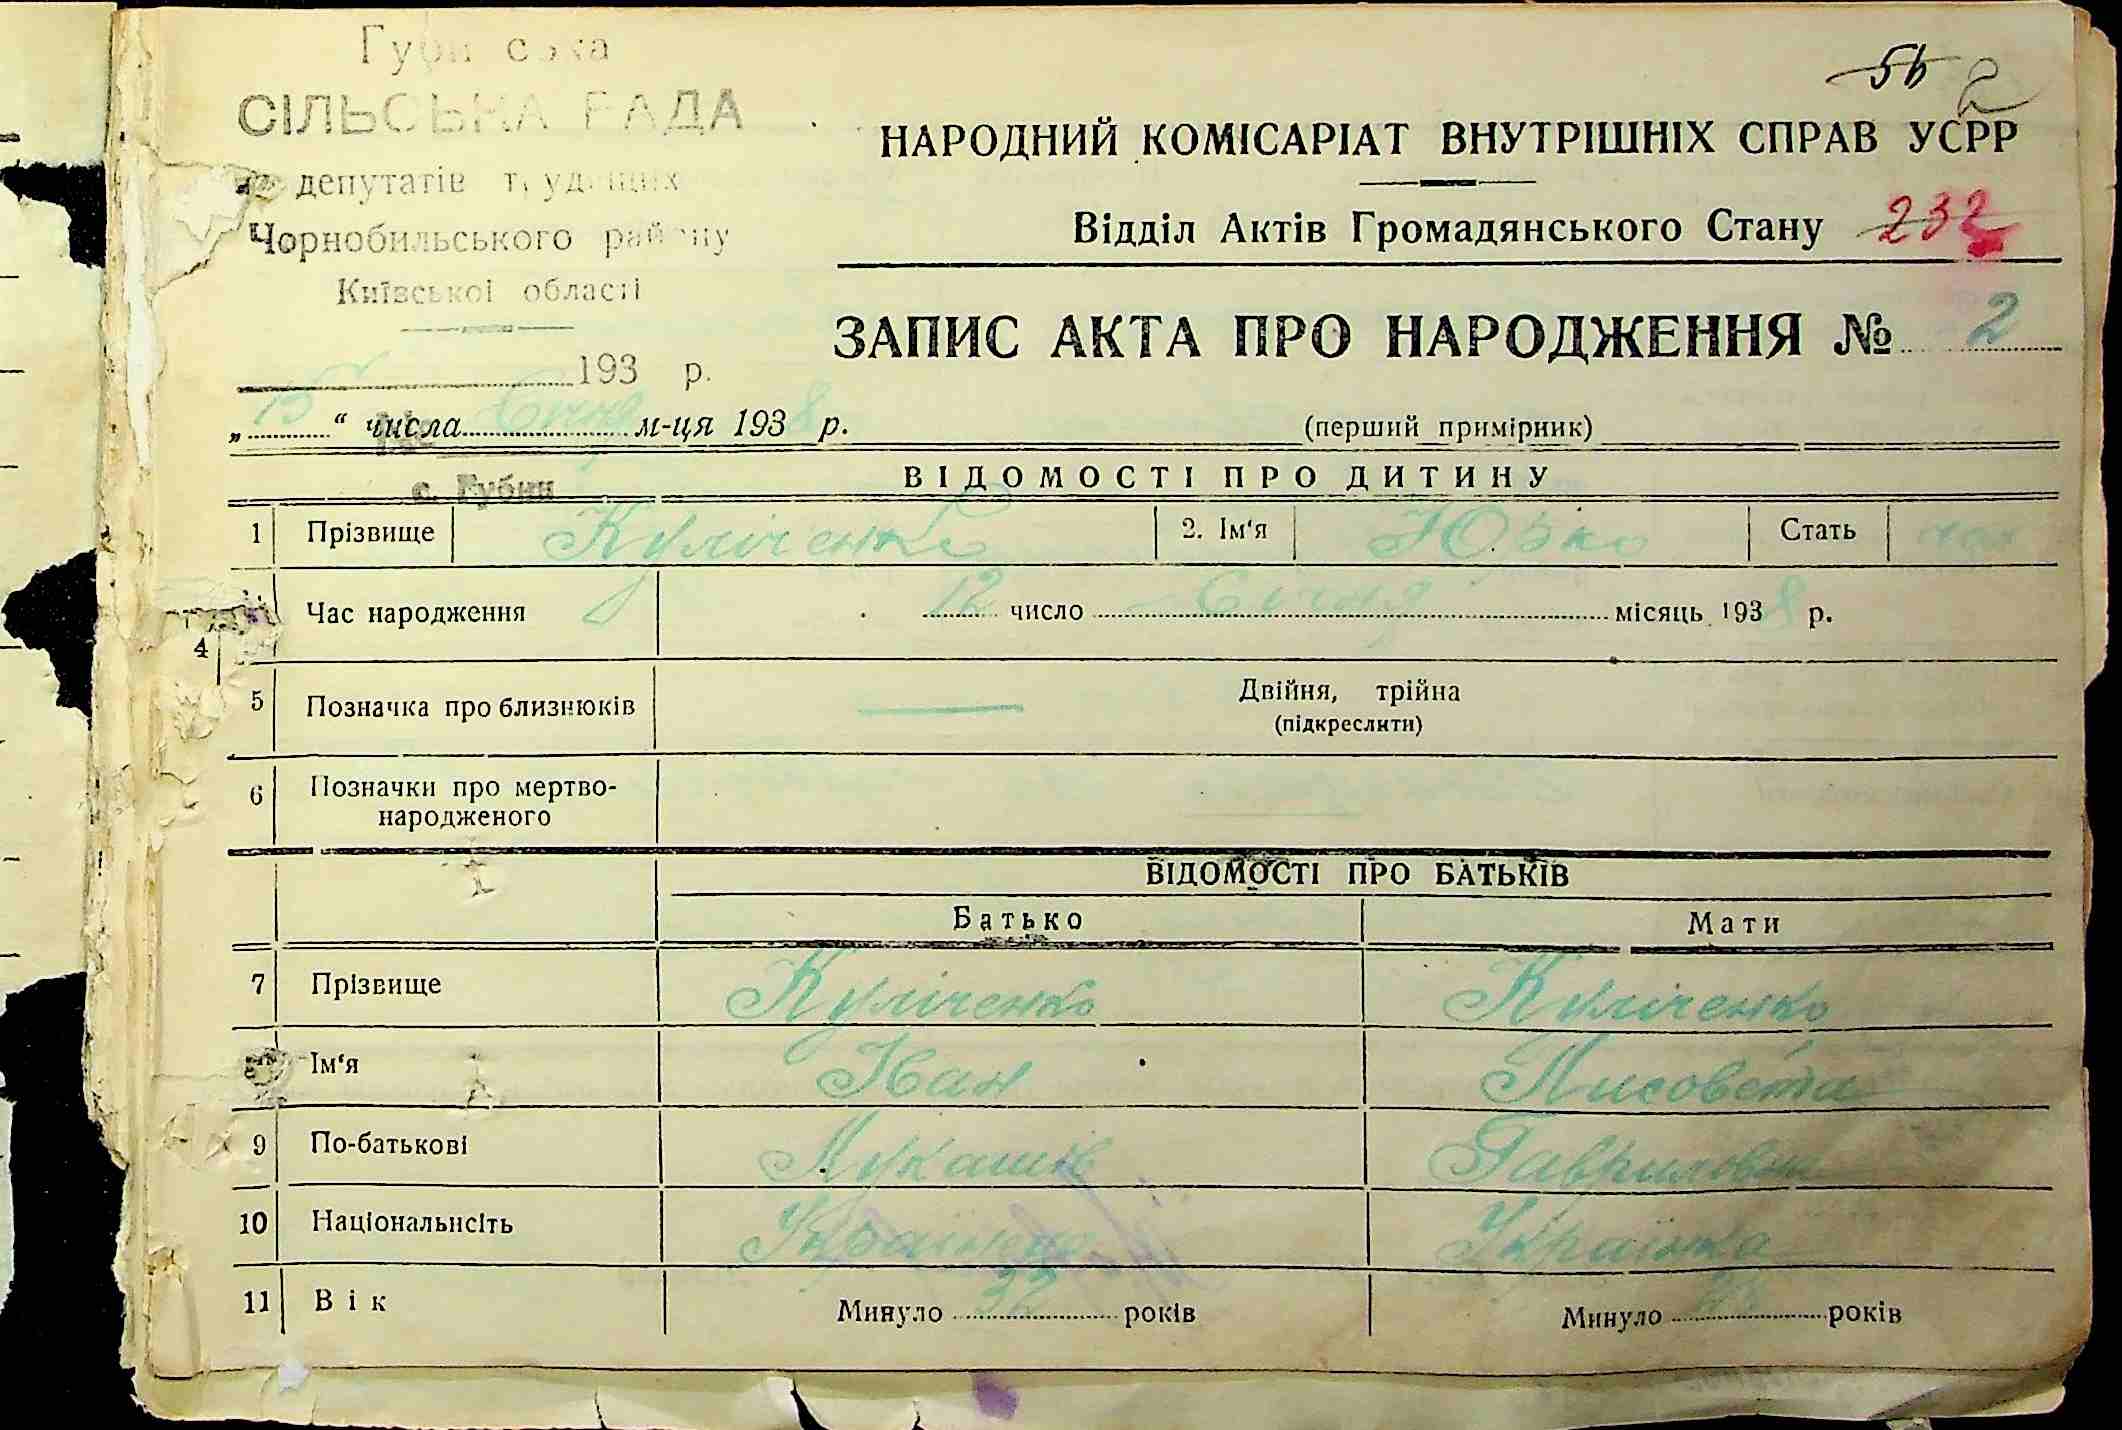 Губинська
СІЛЬСЬКА РАДА
депутатів трудящих
Чорнобильського району
Київської області
193 р.
"15" числа Січня м-ця 1938 р.
с. Губин
56 2
НАРОДНИЙ КОМІСАРІАТ ВНУТРІШНІХ СПРАВ УСРР
Відділ Актів Громадянського Стану 232
ЗАПИС АКТА ПРО НАРОДЖЕННЯ № 2
(перший примірник)
ВІДОМОСТІ ПРО ДИТИНУ
1 Прізвище Куліченко 2. Ім'я Юрко Стать чол
4 Час народження 12 число Січня місяць 1938 р.
5 Позначка про близнюків — Двійня, трійна
(підкреслити)
6 Позначки про мертво-
народженого
ВІДОМОСТІ ПРО БАТЬКІВ
Батько Мати
7 Прізвище Куліченко Куліченко
Ім'я Іван Лисовета
9 По-батькові Лукашів Гавриловна
10 Національність Українець Українка
11 Вік Минуло 32 років Минуло років